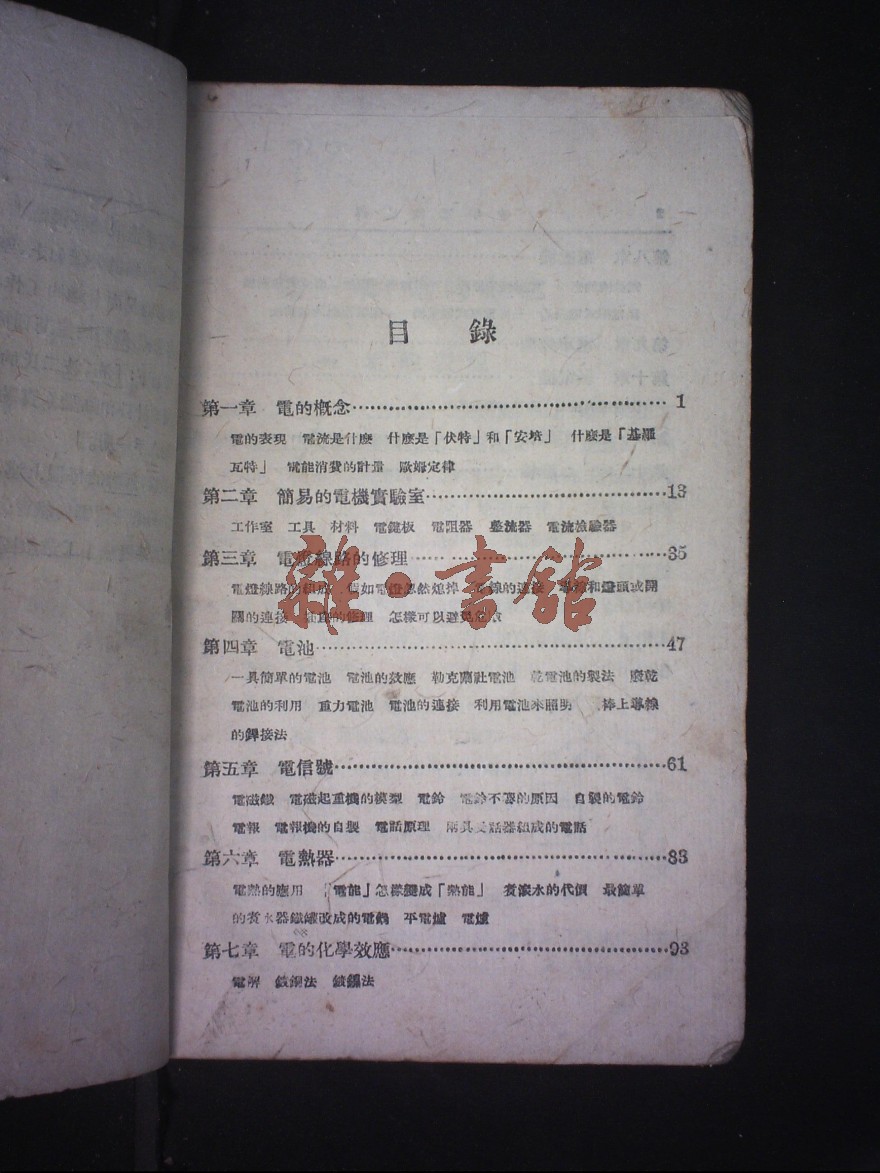 目 錄
第一章 電的概念 1
電的表現 電流是什麼 什麼是「伏特」和「安培」 什麼是「基羅
瓦特」 電能消費的計量 歐姆定律
第二章 簡易的電機實驗室 13
工作室 工具 材料 電鍵板 電阻器 整流器 電流檢驗器
第三章 電燈線路的修理 35
電燈線路的組成 假如電燈忽然熄掉 導線的連接 導線和燈頭或開
關的連接 的修理 怎樣可以避免
第四章 電池 47
一具簡單的電池 電池的效應 勒克蘭社電池 乾電池的製法 廢乾
電池的利用 重力電池 電池的連接 利用電池來照明 棒上導線
的銲接法
第五章 電信號 61
電磁鐵 電磁起重機的模型 電鈴 電鈴不響的原因 自製的電鈴
電報 電報機的自製 電話原理 兩具受話器組成的電話
第六章 電熱器 83
電熱的應用 「電能」怎樣變成「熱能」 煮滾水的代價 最簡單
的煮水器 鐵罐改成的電鍋 平電爐 電爐
第七章 電的化學效應 93
電解 鍍銅法 鍍鎳法
雜·書館